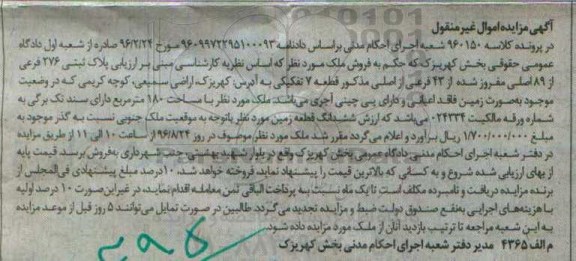 آگهی مزایده اموال غیر منقول
در پرونده کلاسه ۹۶۰۱۵۰ شعبه اجرای احکام مدنی براساس دادنامه ۹۶۰۹۹۷۲۲۹۵۱۰۰۰۹۳ مورخ ۹۶/۲/۲۴ صادره از شعبه اول دادگاه
عمومی حقوقی بخش کهریزک که حکم به فروش ملک مورد نظر که اساس نظریه کارشناسی مبنی بر ارزیابی پلاک ثبتی ۲۷۶ فرعی
از ۸۹ اصلی مفروز شده از ۴۳ فرعی از اصلی مذکور قطعه ۷ تفکیکی به آدرس: کهریزک، اراضی سمیعی، کوچه کریمی که در وضعیت
موجود بصورت زمین فاقد اعیانی و دارای پی چینی آجری می‌باشد. ملک مورد نظر با مساحت ۱۸۰ مترمربع دارای سند تک برگی به
شماره ورقه مالکیت ۰۲۴۳۳۴ می‌باشد که ارزش ششدانگ قطعه زمین مورد نظر باتوجه به موقعیت ملک جنوبی نسبت به گذر موجود به
مبلغ ۱/۷۰۰/۰۰۰/۰۰۰ ریال برآورد و اعلام می‌گردد مقرر شد ملک مورد نظر موصوف در روز ۹۶/۸/۲۴ از ساعت ۱۰ الی ۱۱ از طریق مزایده
در دفتر شعبه اجرای احکام مدنی دادگاه عمومی بخش کهریزک واقع در بلوار شهید بهشتی جنب شهرداری به‌فروش برسد. قیمت پایه
از بهای ارزیابی شده شروع و به کسانی که بالاترین قیمت را پیشنهاد نماید، فروخته خواهد شد، ۱۰درصد مبلغ پیشنهادی فی‌المجلس از
برنده مزایده دریافت و نامبرده مکلف است تا یک ماه نسبت به پرداخت الباقی ثمن معامله اقدام نماید، در غیر این صورت ۱۰ درصد اولیه
با هزینه‌های اجرایی به‌نفع صندوق دولت ضبط و مزایده تجدید می‌گردد. طالبین در صورت تمایل می‌توانند ۵ روز قبل از موعد مزایده
به این شعبه مراجعه تا ترتیب بازدید آنان از ملک مورد مزایده داده شود.
م الف ۴۳۶۵ مدیر دفتر شعبه اجرای احکام مدنی بخش کهریزک